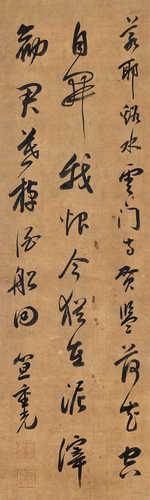 若耶溪水云门寺贺监荷花空
自开我恨今犹在泥滓
劝君莫棹酒船回笪重光